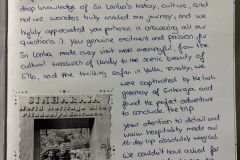 deep knowledge of Sri Lanka's history, culture, and
natures wonders truly enriched our journey, and we
highly appreciated you patience in answering all our
questions :). Your genuine excitment and passion for
Sri Lanka made every visit more meaningful, from the
cultural treasures of Kandy to the scenic beauty of
Ella, and the thrilling safari in Yalla, finally we
were captivated by the lush
greenery of Sinharaja and
found the perfect adventure
to conclude the trip.
SINHARAJA
World Heritage Site
Your attention to detail and
warm hospitality made our
day trip absolutely
We couldn't have asked for